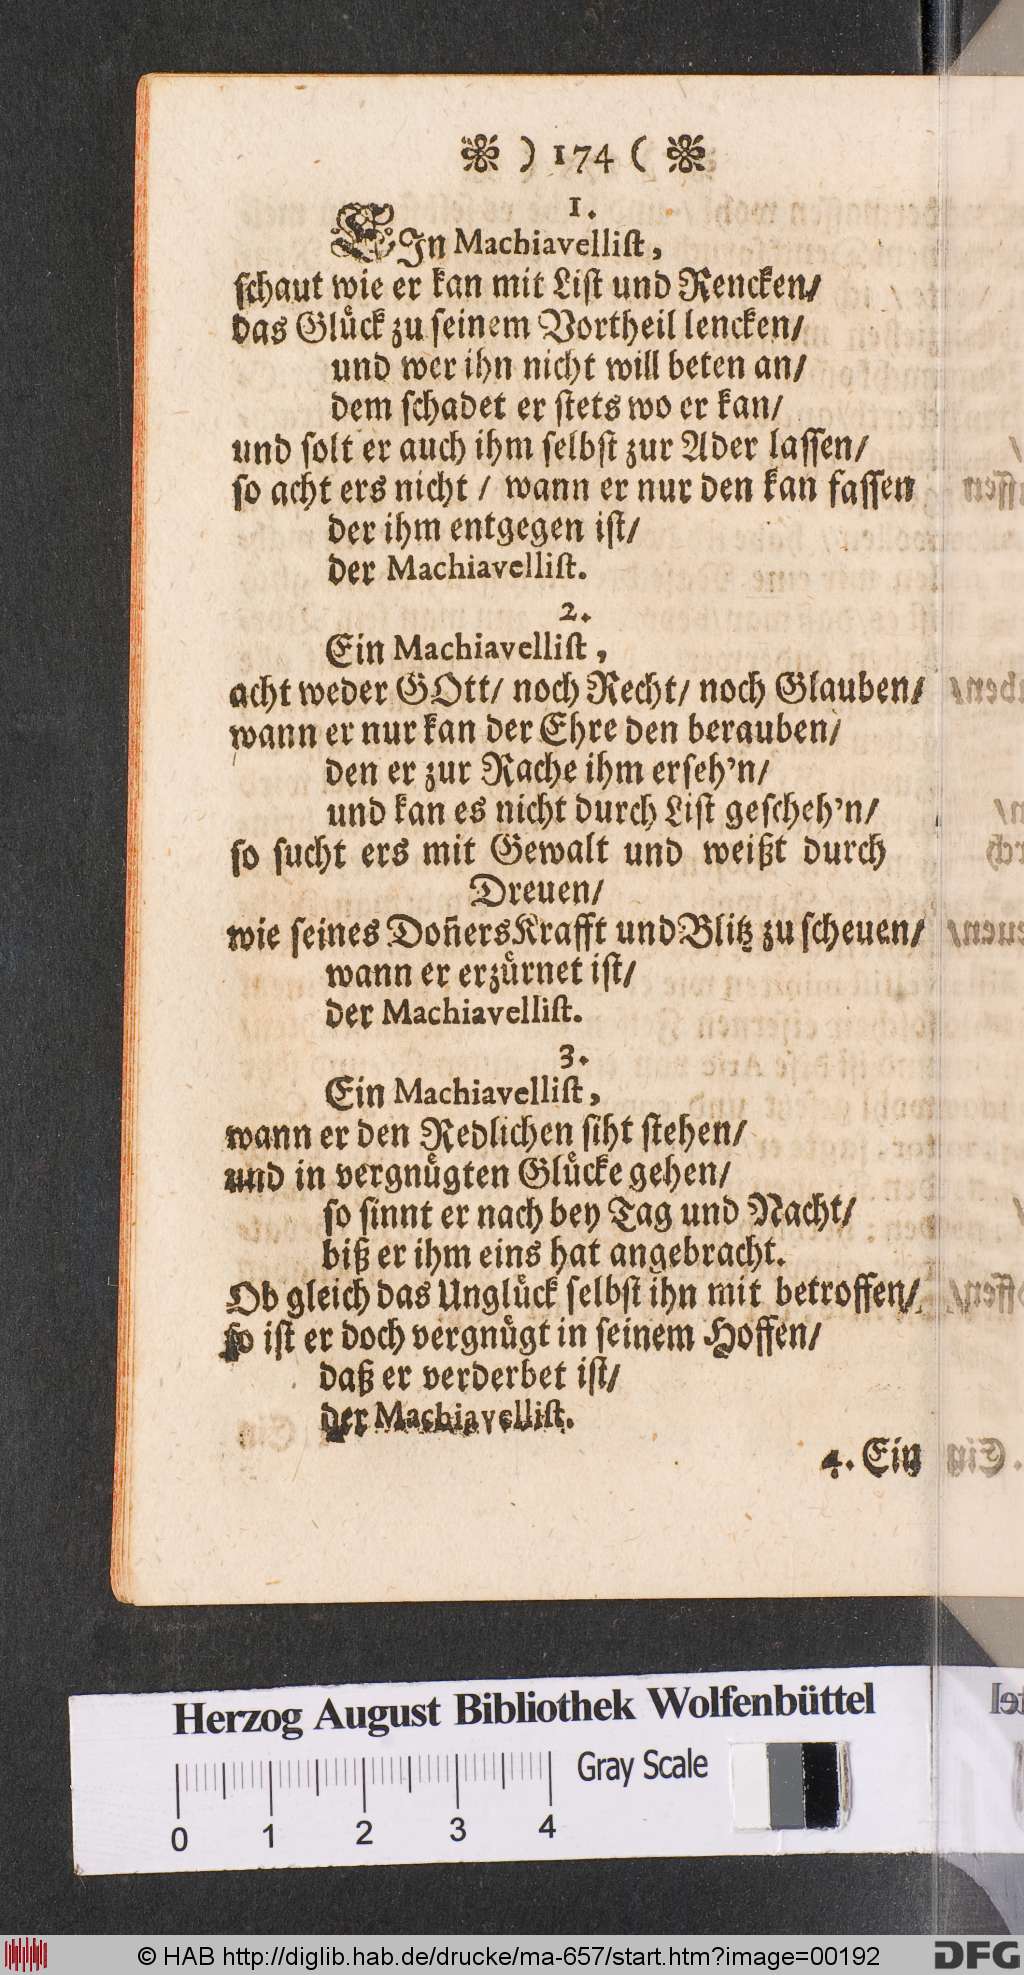 ) 174 (
1.
EIn Machiavellist,
schaut wie er kan mit List und Rencken/
das Glück zu seinem Vortheil lencken/
und wer ihn nicht will beten an/
dem schadet er stets wo er kan/
und solt er auch ihm selbst zur Ader lassen/
so acht ers nicht / wann er nur den kan fassen
der ihm entgegen ist/
der Machiavellist.
2.
Ein Machiavellist,
acht weder GOtt/ noch Recht/ noch Glauben/
wann er nur kan der Ehre den berauben/
den er zur Rache ihm erseh'n/
und kan es nicht durch List gescheh'n/
so sucht ers mit Gewalt und weißt durch
Dreuen/
wie seines Doñers Krafft und Blitz zu scheuen/
wann er erzürnet ist/
der Machiavellist.
3.
Ein Machiavellist,
wann er den Redlichen siht stehen/
und in vergnügten Glücke gehen/
so sinnt er nach bey Tag und Nacht/
biß er ihm eins hat angebracht.
Ob gleich das Unglück selbst ihn mit betroffen/
so ist er doch vergnügt in seinem Hoffen/
daß er verderbet ist/
der Machiavellist.
4. Ein
Herzog August Bibliothek Wolfenbüttel
Gray Scale
0 1 2 3 4
© HAB http://diglib.hab.de/drucke/ma-657/start.htm?image=00192
DFG